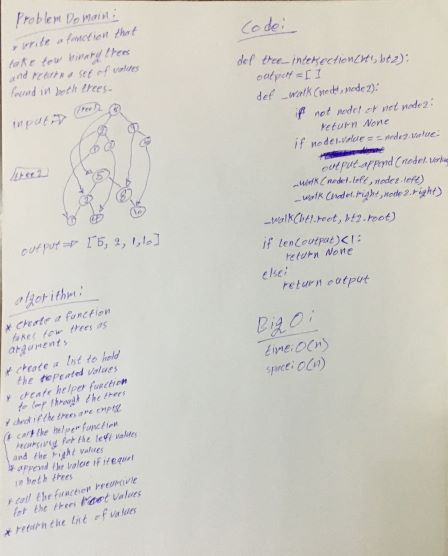 Problem Domain:
* write a function that
take tow binary trees
and return a set of values
found in both trees.
input ⇒ tree1
tree2
output ⇒ [5, 2, 1, 10]
algorithm:
* create a function
takes tow trees as
arguments
* create a list to hold
the repeated values
* create helper function
to loop through the trees
* check if the trees are empty
* call the helper function
recursivly for the left values
and the right values
* append the value if it equal
in both trees
* call the function recursive
for the trees root values
* return the list of values
Code:
def tree_intersection(bt1, bt2):
output = []
def _walk(node1, node2):
if not node1 or not node2:
return None
if node1.value == node2.value:
output.append(node1.value
_walk(node1.left, node2.left)
_walk(node1.right, node2.right)
_walk(bt1.root, bt2.root)
if len(output) < 1:
return None
else:
return output
Big O:
time: O(n)
space: O(n)